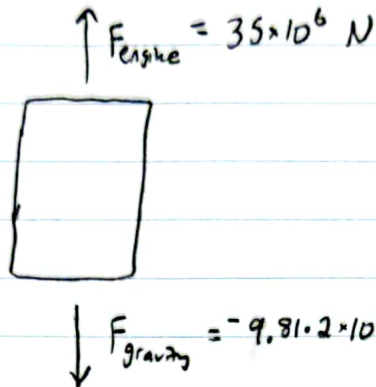 F_engine = 35×10⁶ N
F_gravity = -9.81·2×10